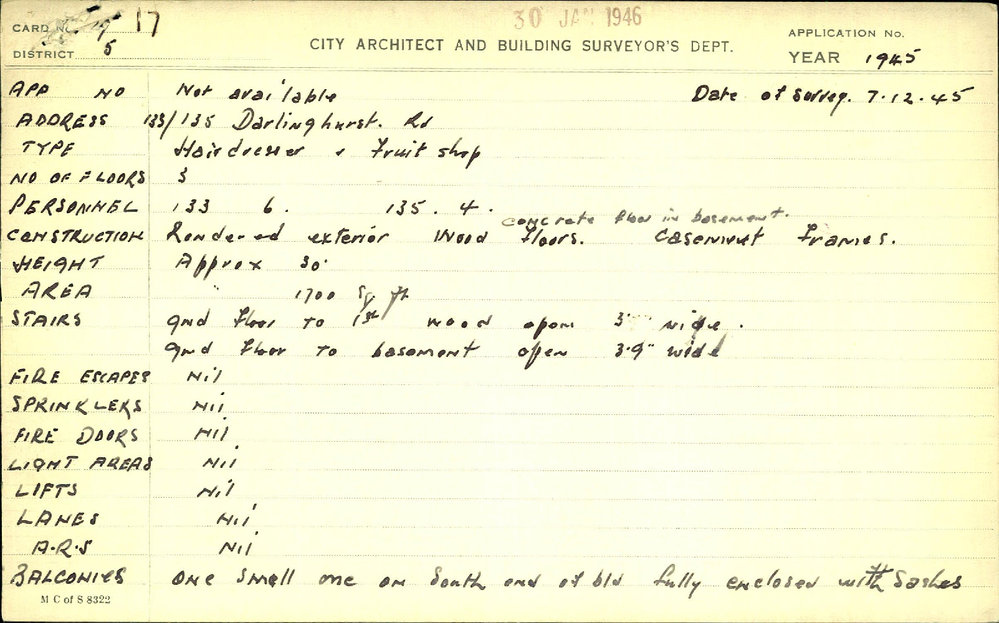 30 JAN 1946
CARD No. 17
DISTRICT 5
CITY ARCHITECT AND BUILDING SURVEYOR'S DEPT.
APPLICATION No.
YEAR 1945
APP NO Not available Date of Survey. 7.12.45
ADDRESS 133/135 Darlinghurst. Rd
TYPE Hairdresser & Fruit shop
NO OF FLOORS 3
PERSONNEL 133 6. 135. 4.
concrete floor in basement.
CONSTRUCTION Rendered exterior Wood floors. Casement Frames.
HEIGHT Approx 30'
AREA 1700 sq ft
STAIRS Gnd Floor to 1st wood open 3' wide.
Gnd Floor to basement open 3'9" wide
FIRE ESCAPES Nil
SPRINKLERS Nil
FIRE DOORS Nil
LIGHT AREAS Nil
LIFTS Nil
LANES Nil
A.R.S Nil
BALCONIES one small one on South end of bld fully enclosed with Sashes
M C of S 8322